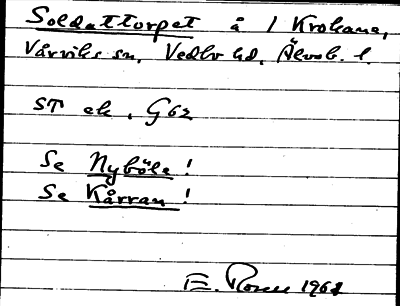 Soldattorpet å 1 Krokane,
Vårviks sn, Vedbo hd, Älvsb. l.
ST ek, G62
Se Nyböle!
Se Kårran!
E. Rosell 1962